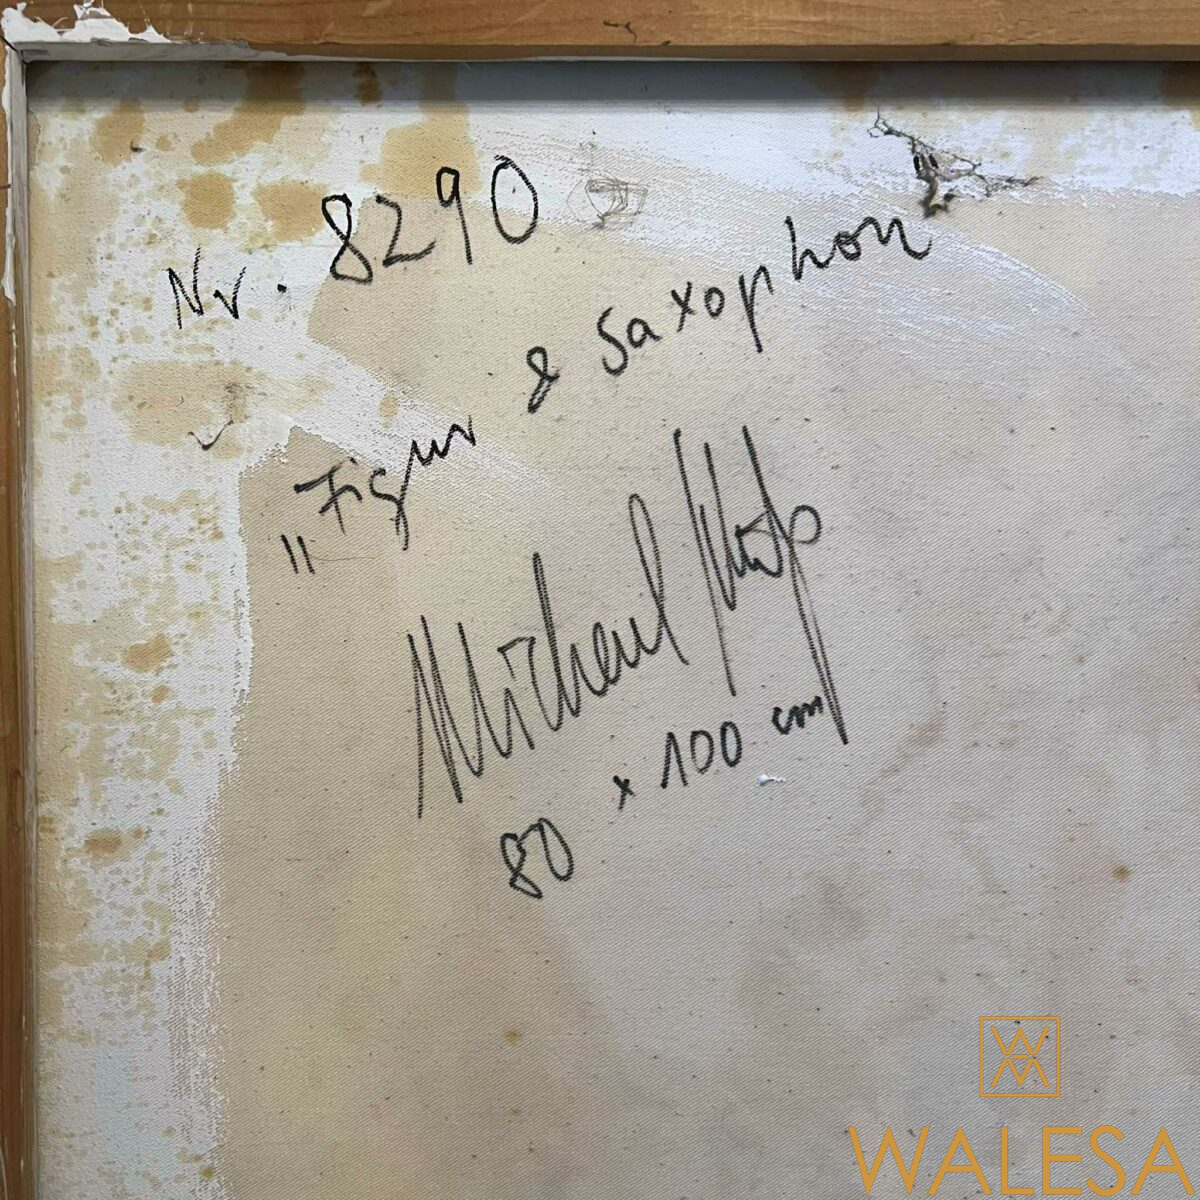 Nr. 8290
„Figur & Saxophon
Michael
80 x 100 cm
WALESA